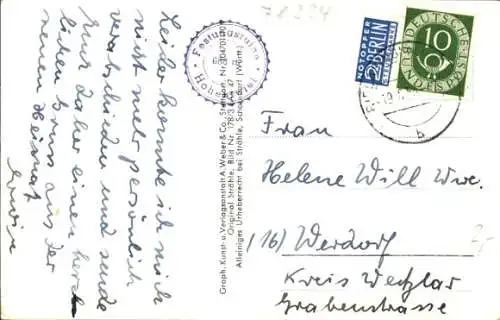 78394
Leider konnte ich mich
nicht mehr persönlich
verabschieden und sende
Euch daher einen herz-
lichen Gruss aus der
neuen Heimat
Erwin
Festungsruine
Graph. Kunst- u. Verlagsanstalt A. Weber & Co., Stuttgart
Original Strähle, Bild Nr.
Alleiniges Urheberrecht bei Strähle, Schorndorf (Württ.)
NOTOPFER
2 BERLIN
STEUERMARKE
DEUTSCHE BUNDESPOST
10
b
Frau
Helene Will Wwe.
(16) Werdorf
Kreis Wetzlar
Grabenstrasse